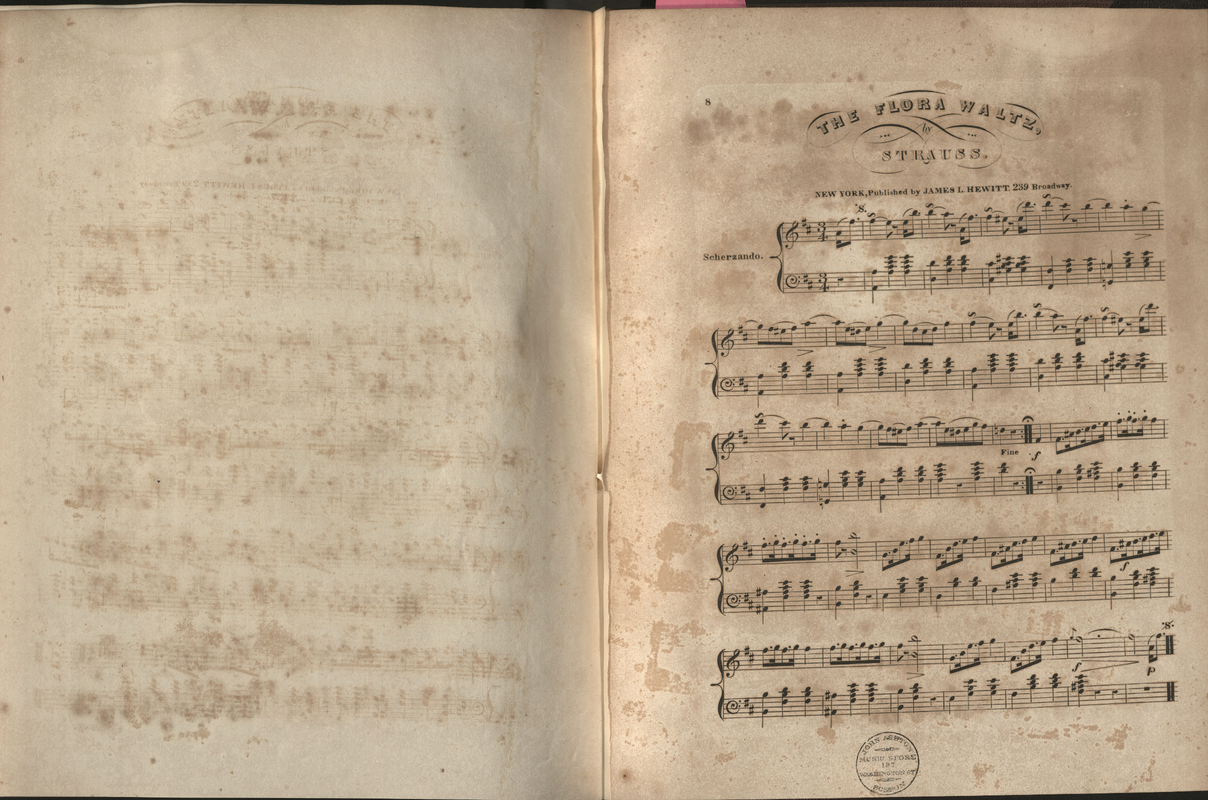 8
THE FLORA WALTZ,
by
STRAUSS.
NEW YORK, Published by JAMES L. HEWITT. 239 Broadway.
Scherzando.
Fine
f
f
f
p
JOHN ASHTON
MUSIC STORE
197
WASHINGTON ST
BOSTON